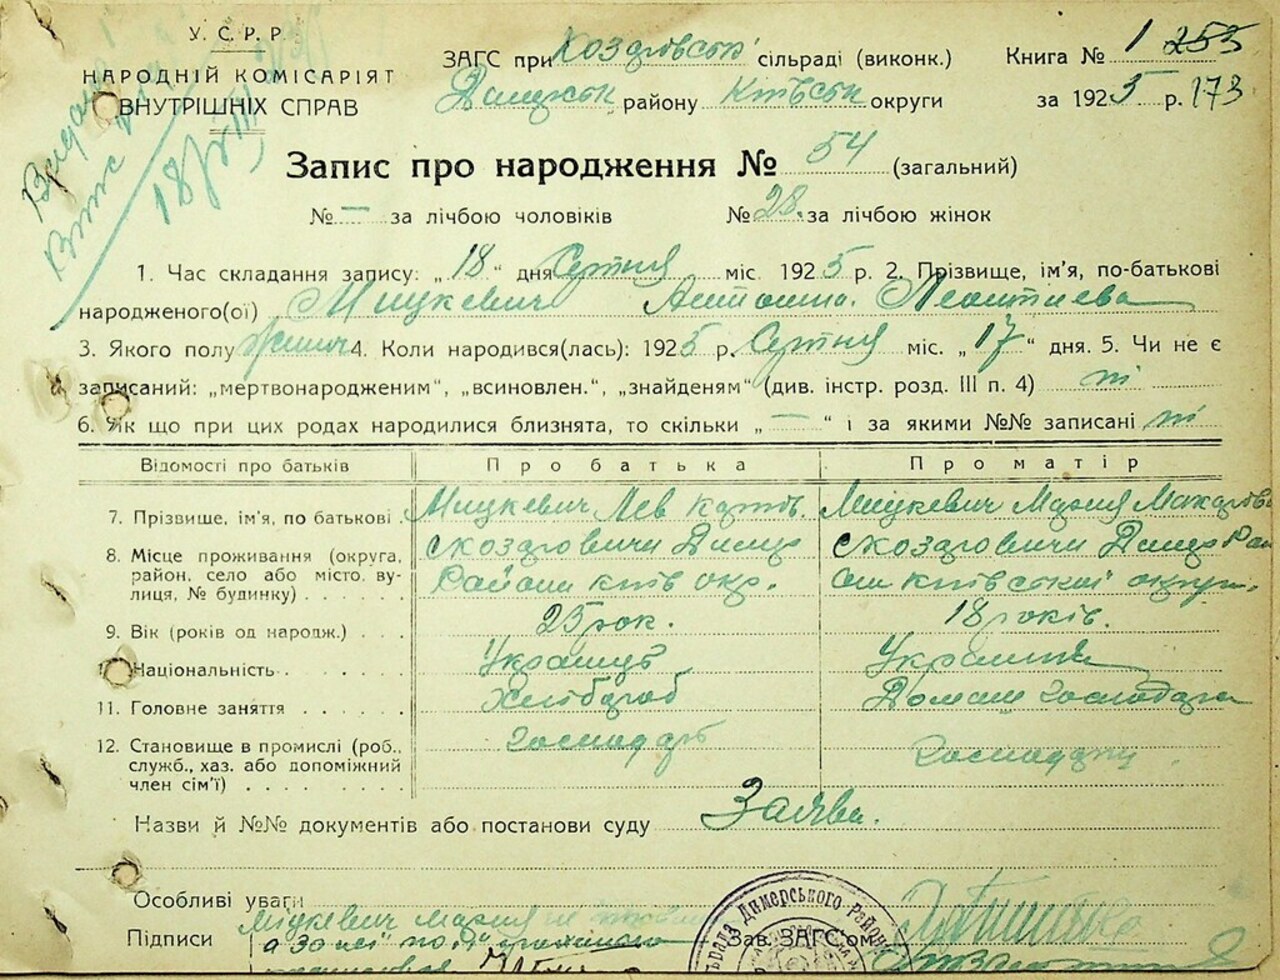 У. С. Р. Р.
НАРОДНІЙ КОМІСАРІЯТ
ВНУТРІШНІХ СПРАВ
ЗАГС при сільраді (виконк.)
району Київськ округи
Книга № 1 253
за 1925 р. 173
18/VIII
Запис про народження № 54 (загальний)
№ — за лічбою чоловіків № 28. за лічбою жінок
1. Час складання запису: „18“ дня Серпня міс. 1925 р. 2. Прізвище, ім'я, по-батькові
народженого(ої) Мицкевич Антонина Леонтиева
3. Якого полу жіноч 4. Коли народився(лась): 1925 р. Серпня міс. „17“ дня. 5. Чи не є
записаний: „мертвонародженим“, „всиновлен.“, „знайденям“ (див. інстр. розд. III п. 4) ні
6. Як що при цих родах народилися близнята, то скільки „—“ і за якими №№ записані ні
Відомості про батьків Про батька Про матір
7. Прізвище, ім'я, по батькові Мицкевич Лев Мицкевич Мария Макарівна
8. Місце проживання (округа,
район, село або місто, ву-
лиця, № будинку) Район Київ окр. Київської округи.
9. Вік (років од народж.) 23 рок. 18 років.
10. Національність Украинец Украинка
11. Головне заняття Хлібороб Домашн господарка
12. Становище в промислі (роб.,
служб., хаз. або допоміжний
член сім'ї) господарь
Назви й №№ документів або постанови суду Заява.
Особливі уваги
Підписи Міцкевич Мария
Зав. ЗАГС'ом
Димерського Району